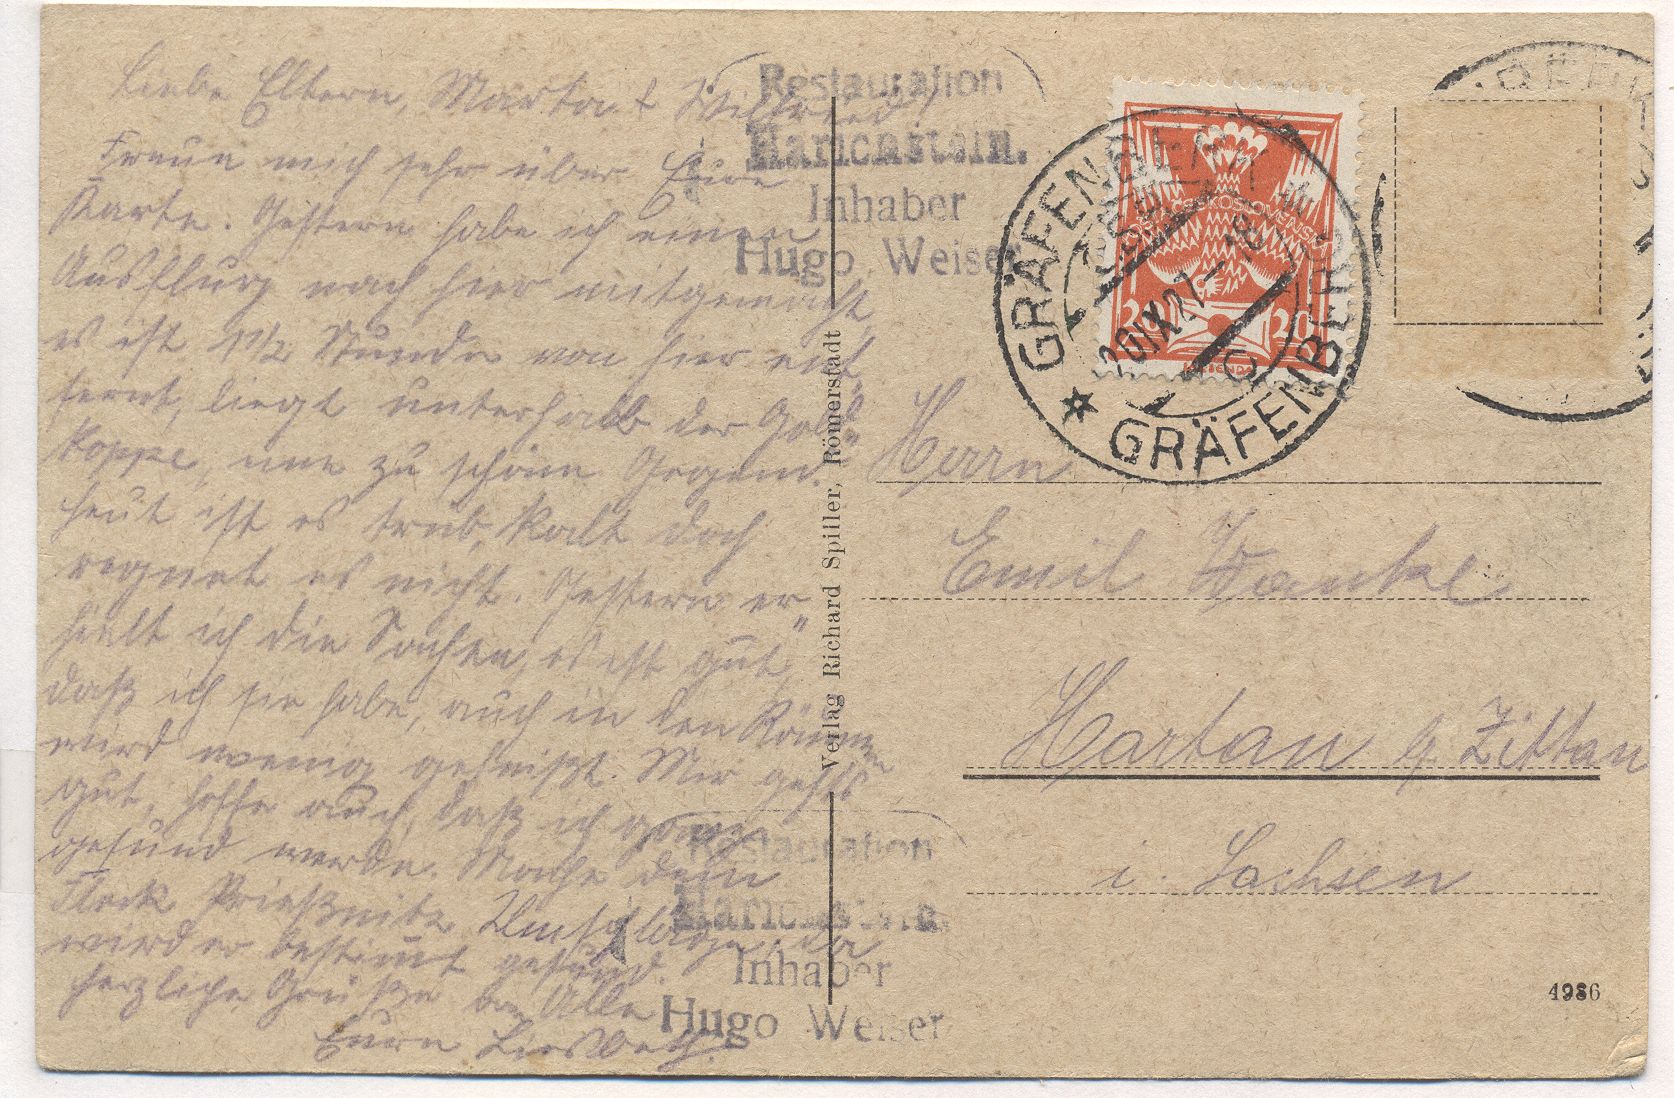 Liebe Eltern, Marta & Wilfried!
Freue mich sehr über Eure
Karte. Gestern habe ich einen
Ausflug nach hier mitgemacht,
es ist 1 1/2 Stunde von hier ent-
fernt, liegt unterhalb der Gold-
koppe, eine zu schöne Gegend.
Heut ist es trüb, kalt doch
regnet es nicht. Gestern er-
hielt ich die Sachen, es ist gut,
daß ich sie habe, auch in den Räumen
wird wenig geheizt. Mir gehts
gut, hoffe auch, daß ich ganz
gesund werde. Mache dem
Fleck Prießnitz Umschläge, da
wird er bestimmt gesund.
Herzliche Grüße an Alle
Eure Liesbeth.
Restauration
Harichstein.
Inhaber
Hugo Weiser
Restauration
Harichstein.
Inhaber
Hugo Weiser
Verlag Richard Spiller, Römerstadt
GRÄFENBERG
GRÄFENBERG
20 IX 27 - 18
ČESKOSLOVENSKO
20 20
Herrn
Emil Wanke
Hartau b/ Zittau
i. Sachsen
4986